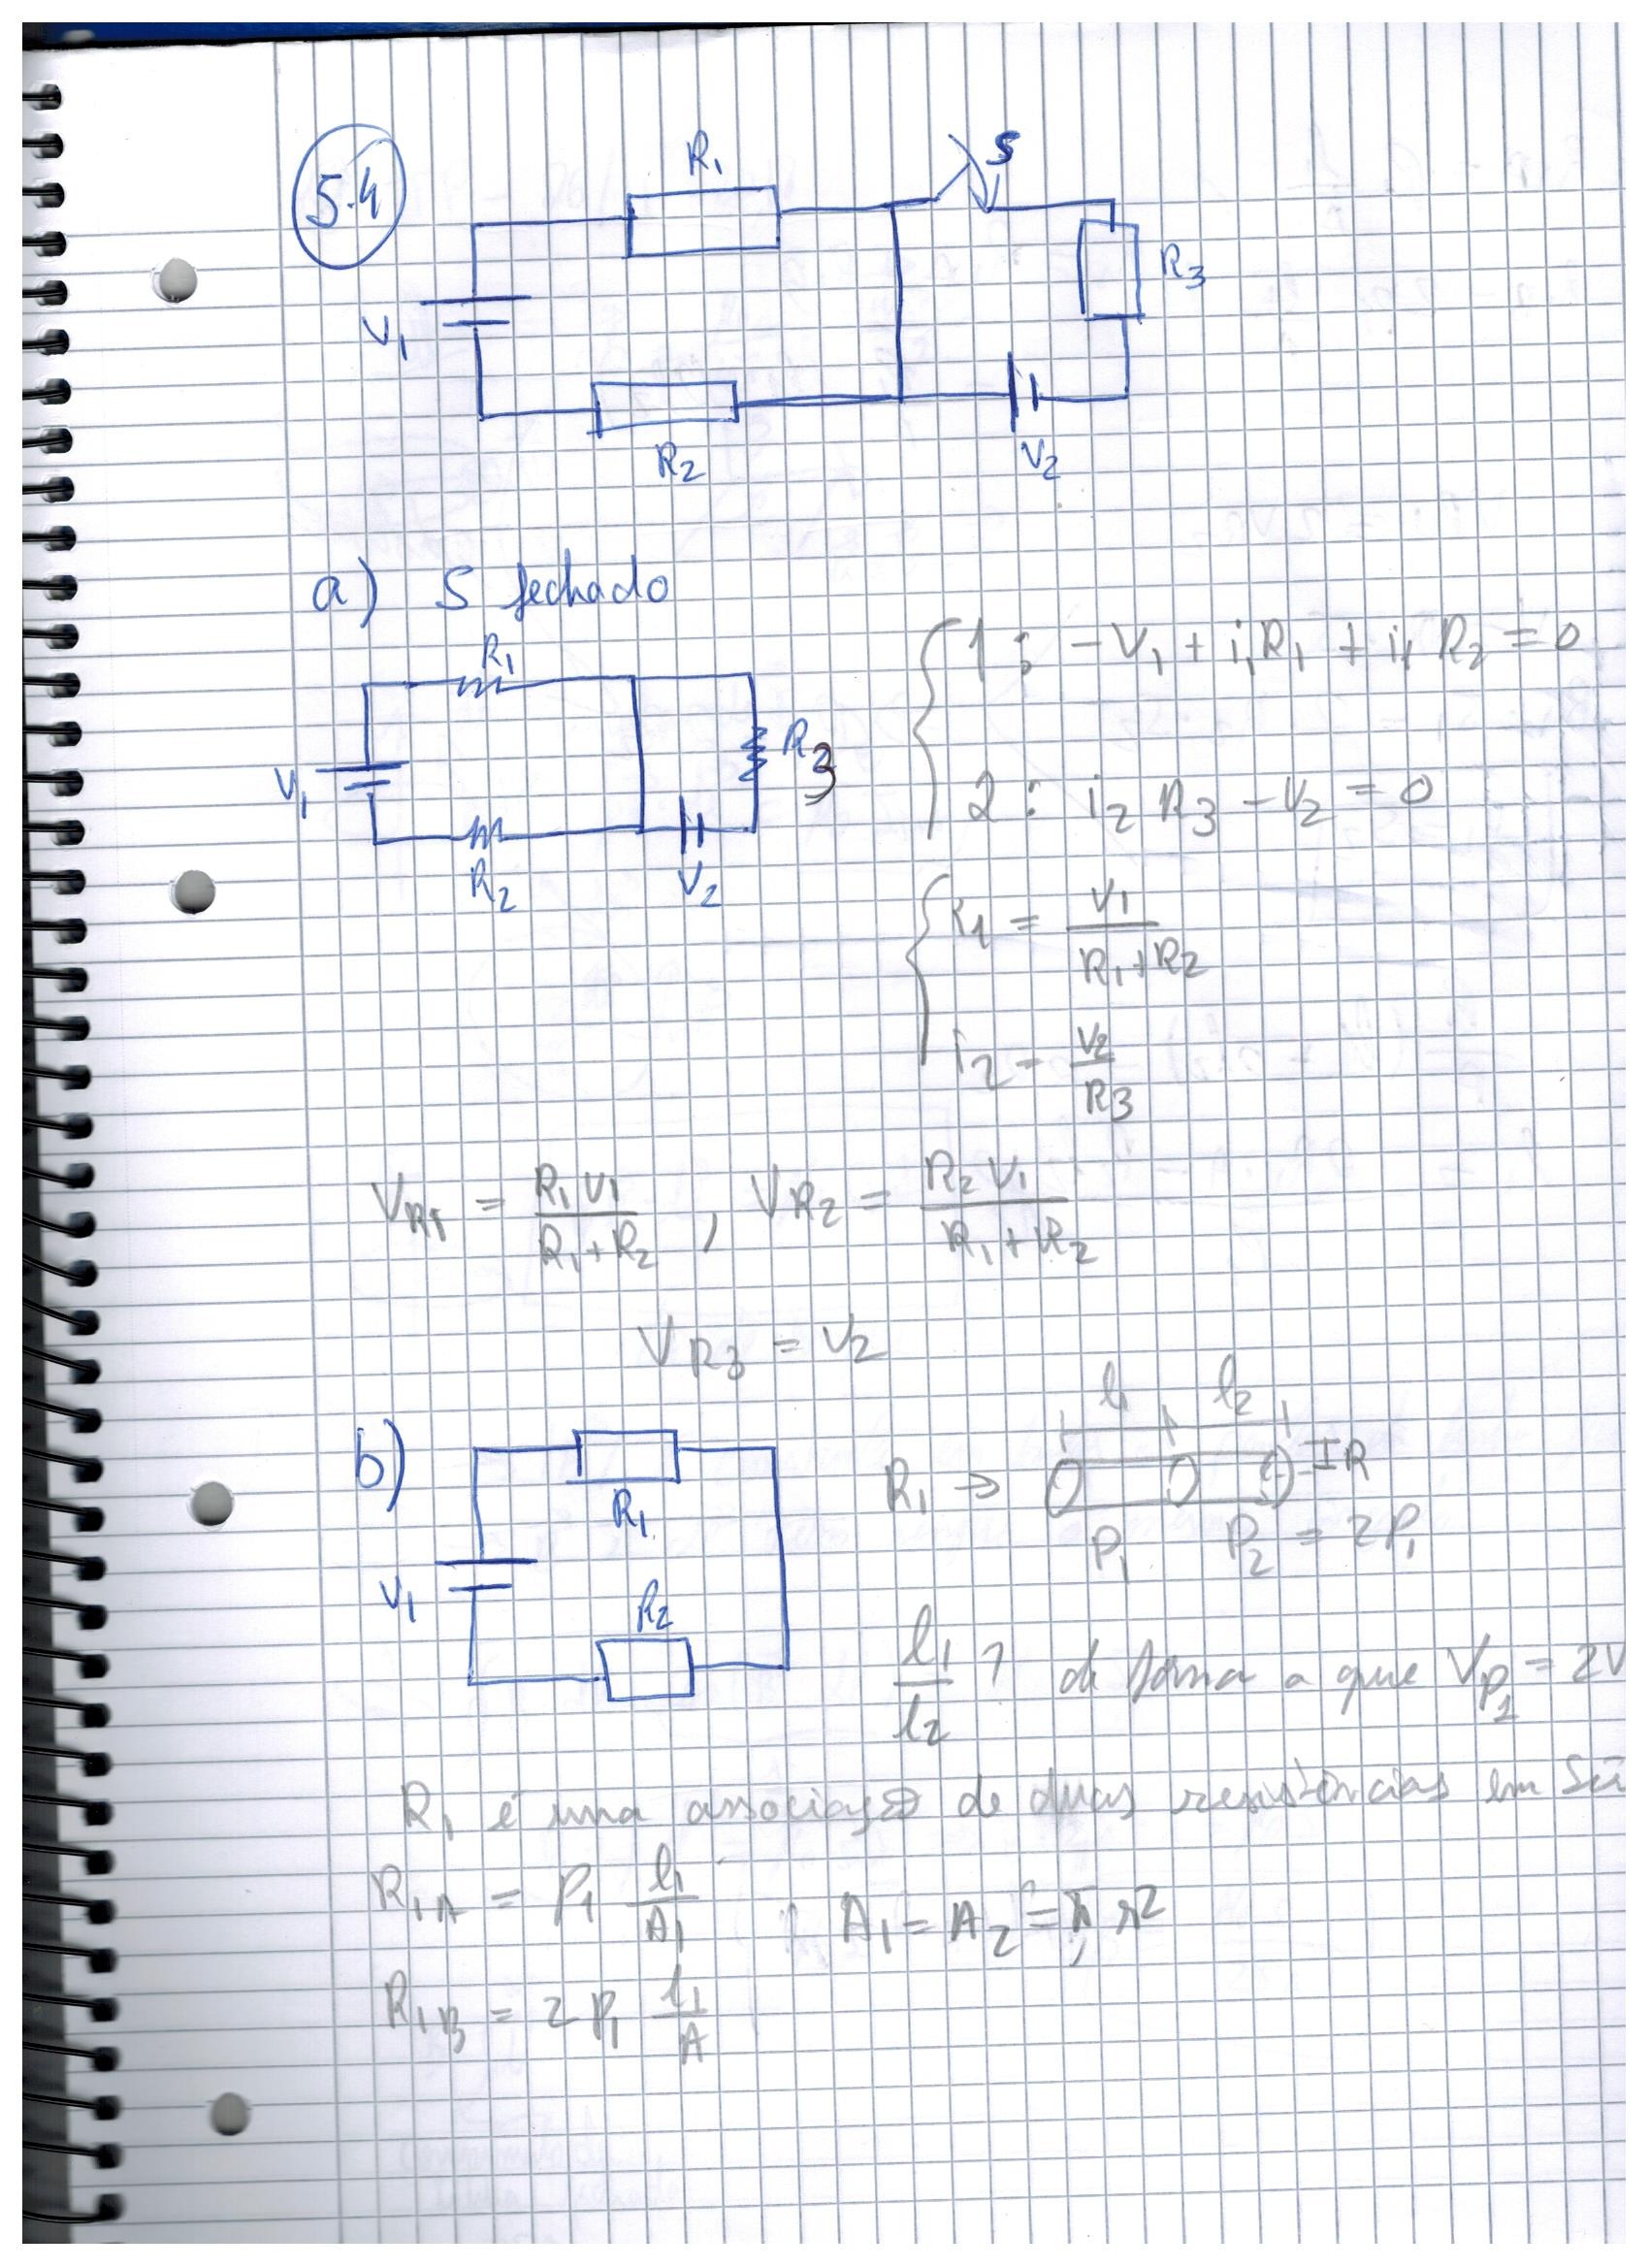 5.4
R1
S
R3
V1
R2
V2
a) S fechado
R1
R3
V1
R2
V2
1: -V1 + i1R1 + i1 R2 = 0
2: i2 R3 - V2 = 0
i1 = V1 / R1+R2
i2 = V2 / R3
VR1 = R1 V1 / R1+R2 , VR2 = R2 V1 / R1+R2
VR3 = V2
b)
R1
V1
R2
l1 l2
R1 → R
ρ1 ρ2 = 2ρ1
l1 / l2 ? de forma a que Vρ1 = 2V
R1 é uma associação de duas resistências em
R1A = ρ1 l1 / A1 , A1 = A2 = π r²
R1B = 2ρ1 l1 / A